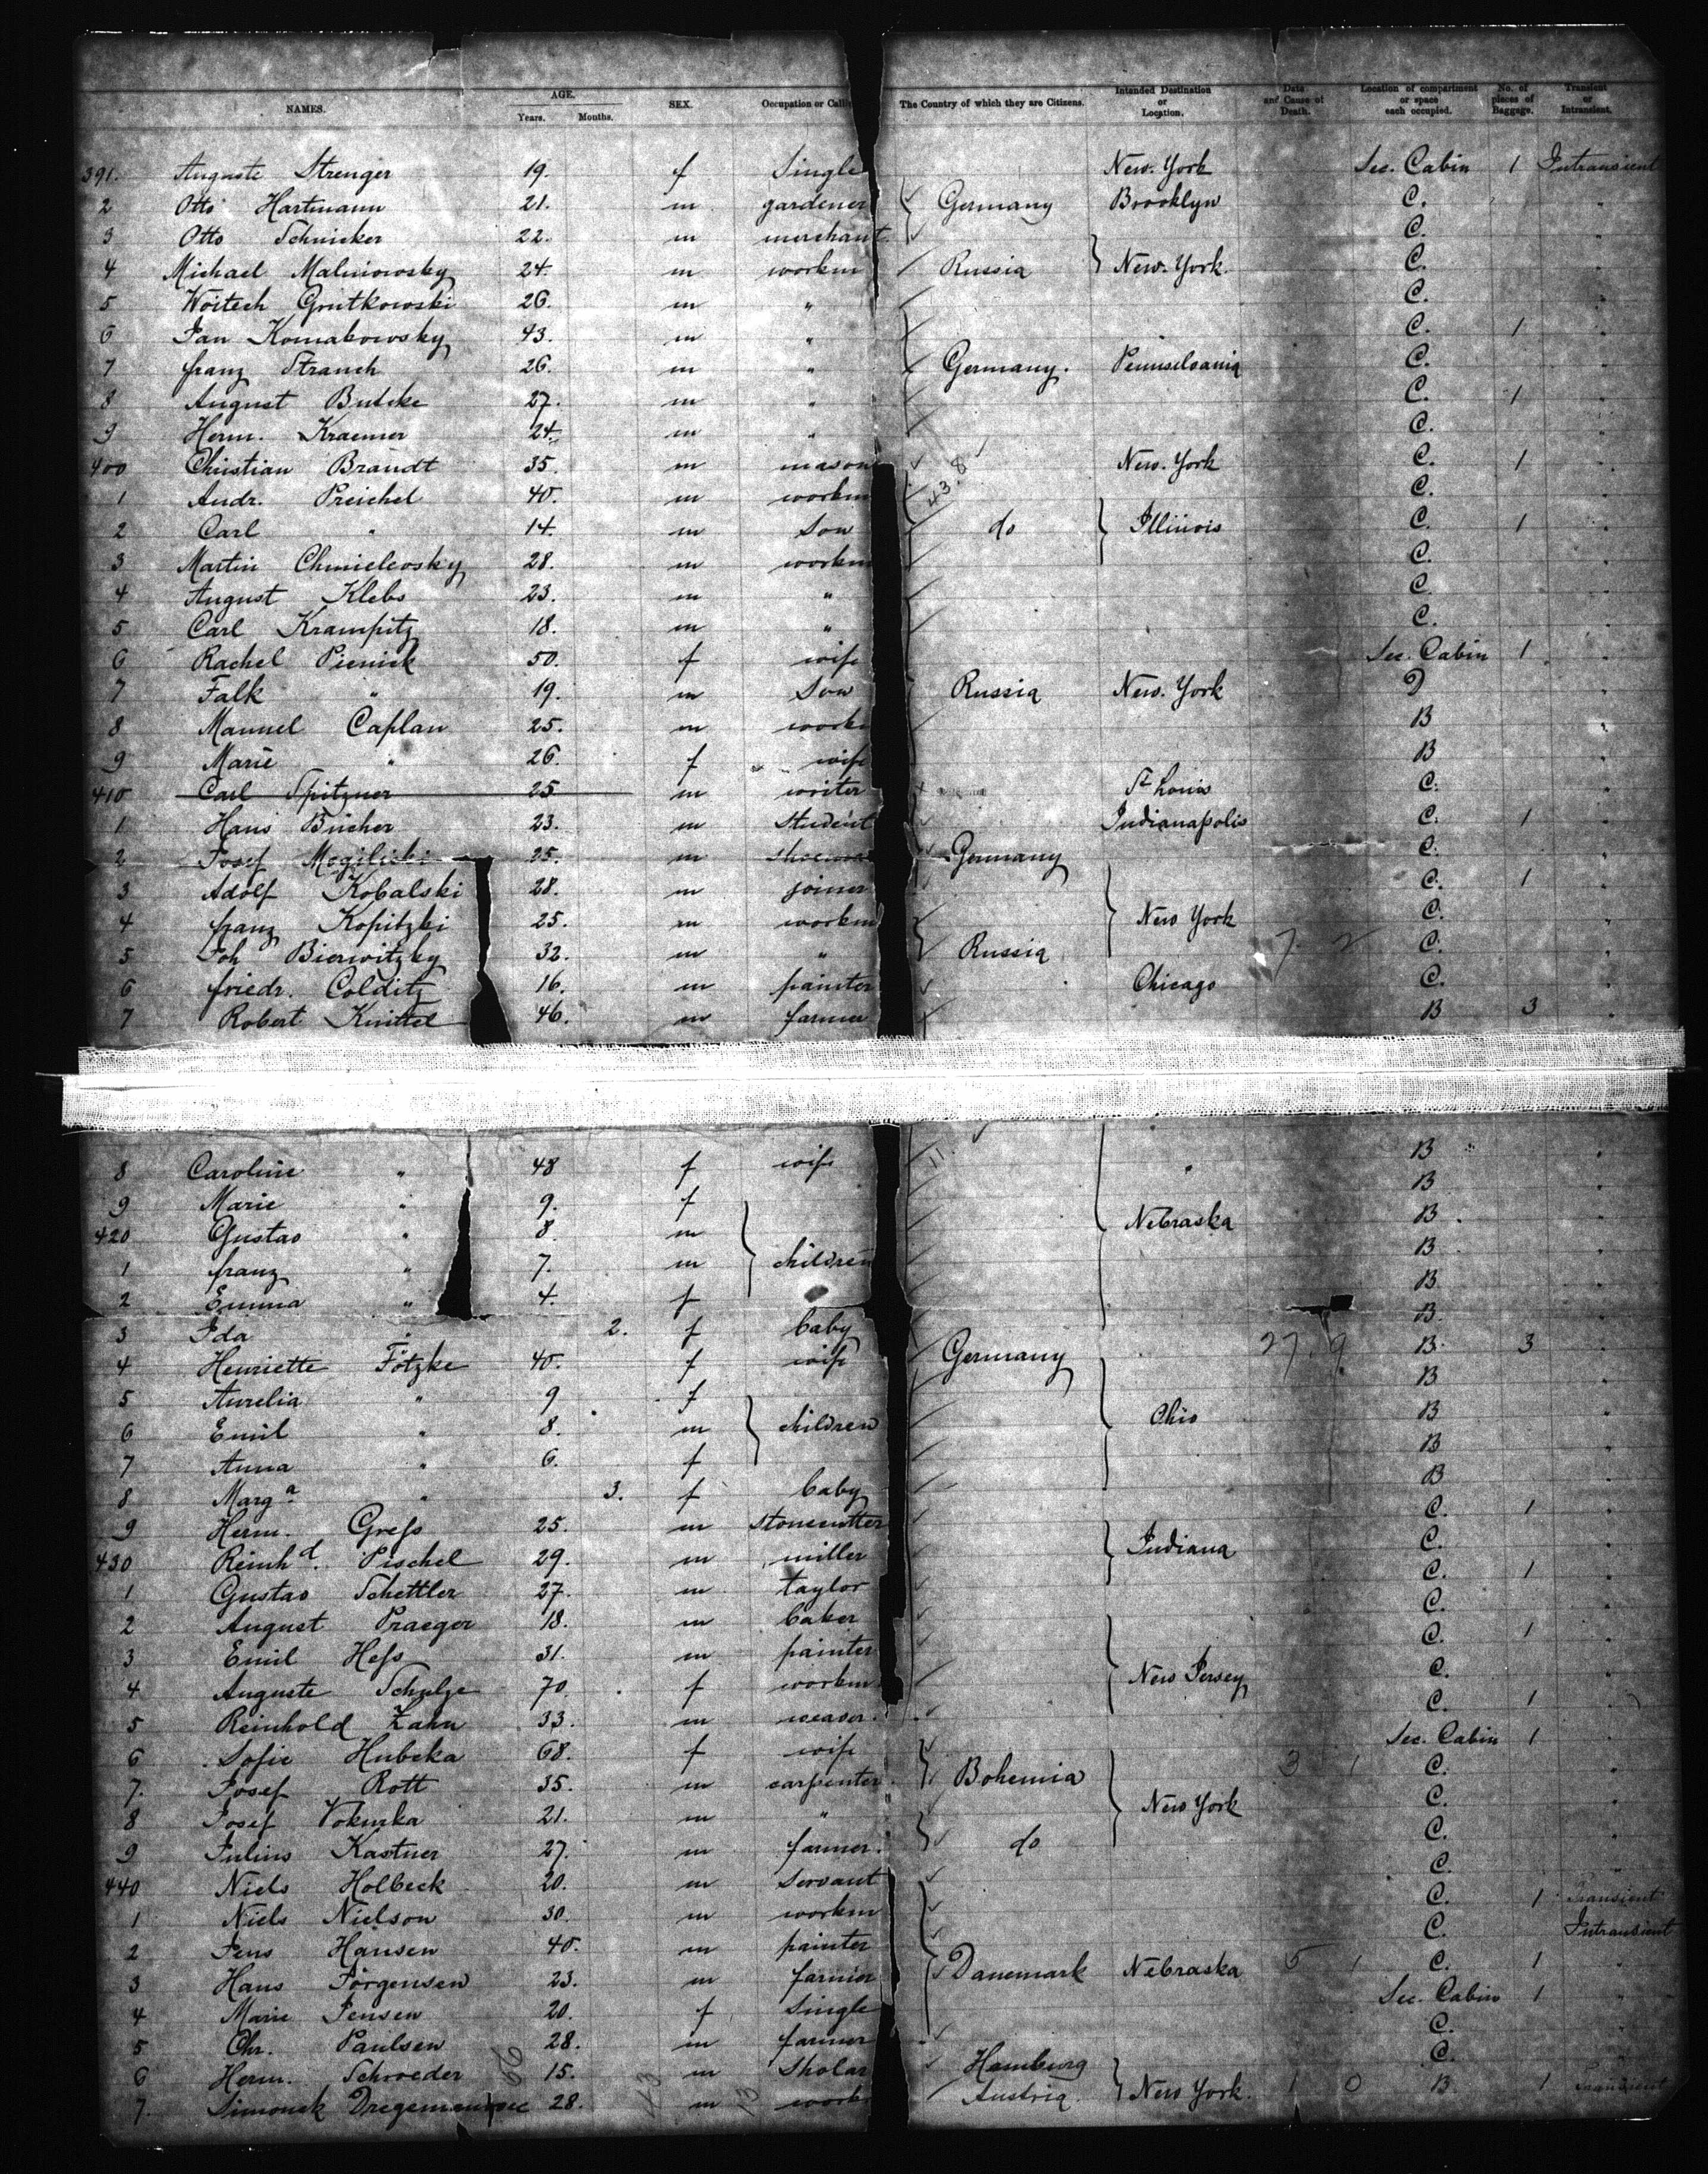 NAMES. AGE. Years. Months. SEX. Occupation or Calli The Country of which they are Citizens. Intended Destination or Location. Date and Cause of Death. Location of compartment or space each occupied. No. of pieces of Baggage. Transient or Intransient.
391. Auguste Strenger 19. f Single New. York Sec. Cabin 1 Intransient
2 Otto Hartmann 21. m gardener Germany Brooklyn C. "
3 Otto Schnicker 22. m merchant C. "
4 Michael Malinowsky 24. m workm Russia New. York. C. "
5 Woitech Grutkowski 26. m " C. "
6 Jan Komabowsky 43. m " C. 1 "
7 franz Strauch 26. m " Germany. Pennsilvania C. "
8 August Butzke 27. m " C. 1 "
9 Herm. Kraemer 24. m " C. "
400 Christian Brandt 35. m mason New. York C. 1 "
1 Andr. Preichel 40. m workm C. "
2 Carl " 14. m Son do Illinois C. 1 "
3 Martin Chmielevsky 28. m workm C. "
4 August Klebs 23. m " C. "
5 Carl Krampitz 18. m " C. "
6 Rachel Pienick 50. f wife Sec. Cabin 1 "
7 Falk " 19. m Son Russia New. York "
8 Manuel Caplan 25. m workm B "
9 Marie " 26. f wife B "
410 Carl Spitzner 25 m writer St Louis C. "
1 Hans Bücher 23. m Student Indianapolis C. 1 "
2 Josef Mogiliski 25. m Germany C. "
3 Adolf Kobalski 28. m joiner C. 1 "
4 franz Kopitzki 25. m workm New York C. "
5 Joh Bierwitzky 32. m " Russia 7. 2 C. "
6 friedr. Colditz 16. m painter Chicago C. "
7 Robert Knittel 46. m farmer B 3 "
8 Caroline " 48 f wife 11. " B "
9 Marie " 9. f B "
420 Gustav " 8. m Nebraska B "
1 franz " 7. m children B "
2 Emma " 4. f B "
3 Ida " 2. f baby B "
4 Henriette Fötzke 40. f wife Germany 27 9 B. 3 "
5 Aurelia " 9 f B "
6 Emil " 8. m children Ohio B "
7 Anna " 6. f B "
8 Marga " 3. f baby B "
9 Herm. Gress 25. m stonecutter C. 1 "
430 Reinhd. Pischel 29. m miller Indiana C. "
1 Gustav Schettler 27. m taylor C. 1 "
2 August Praeger 18. m baker C. "
3 Emil Hess 31. m painter C. 1 "
4 Auguste Schulze 70 f workm New Jersey C. "
5 Reinhold Zahn 33. m weaver. C. 1 "
6 Sofie Hubcka 68. f wife Sec. Cabin 1 "
7. Josef Rott 35. m carpenter Bohemia 3 1 C. "
8 Josef Vokurka 21. m " New York C. "
9 Julius Kastner 27. m farmer. do C. "
440 Niels Holbeck 20. m Servant C. "
1 Niels Nielson 30. m workm C. 1 Transient
2 Jens Hansen 40. m painter C. Intransient
3 Hans Jörgensen 23. m farmer Danemark Nebraska 5 1 C. 1 "
4 Marie Jensen 20. f Single Sec. Cabin 1 "
5 Chr. Paulsen 28. m farmer C. "
6 Herm. Schroeder 15. m Sholar Hamburg C. "
7. Simonek 28. m work Austria New York. 1 0 B. 1 Transient